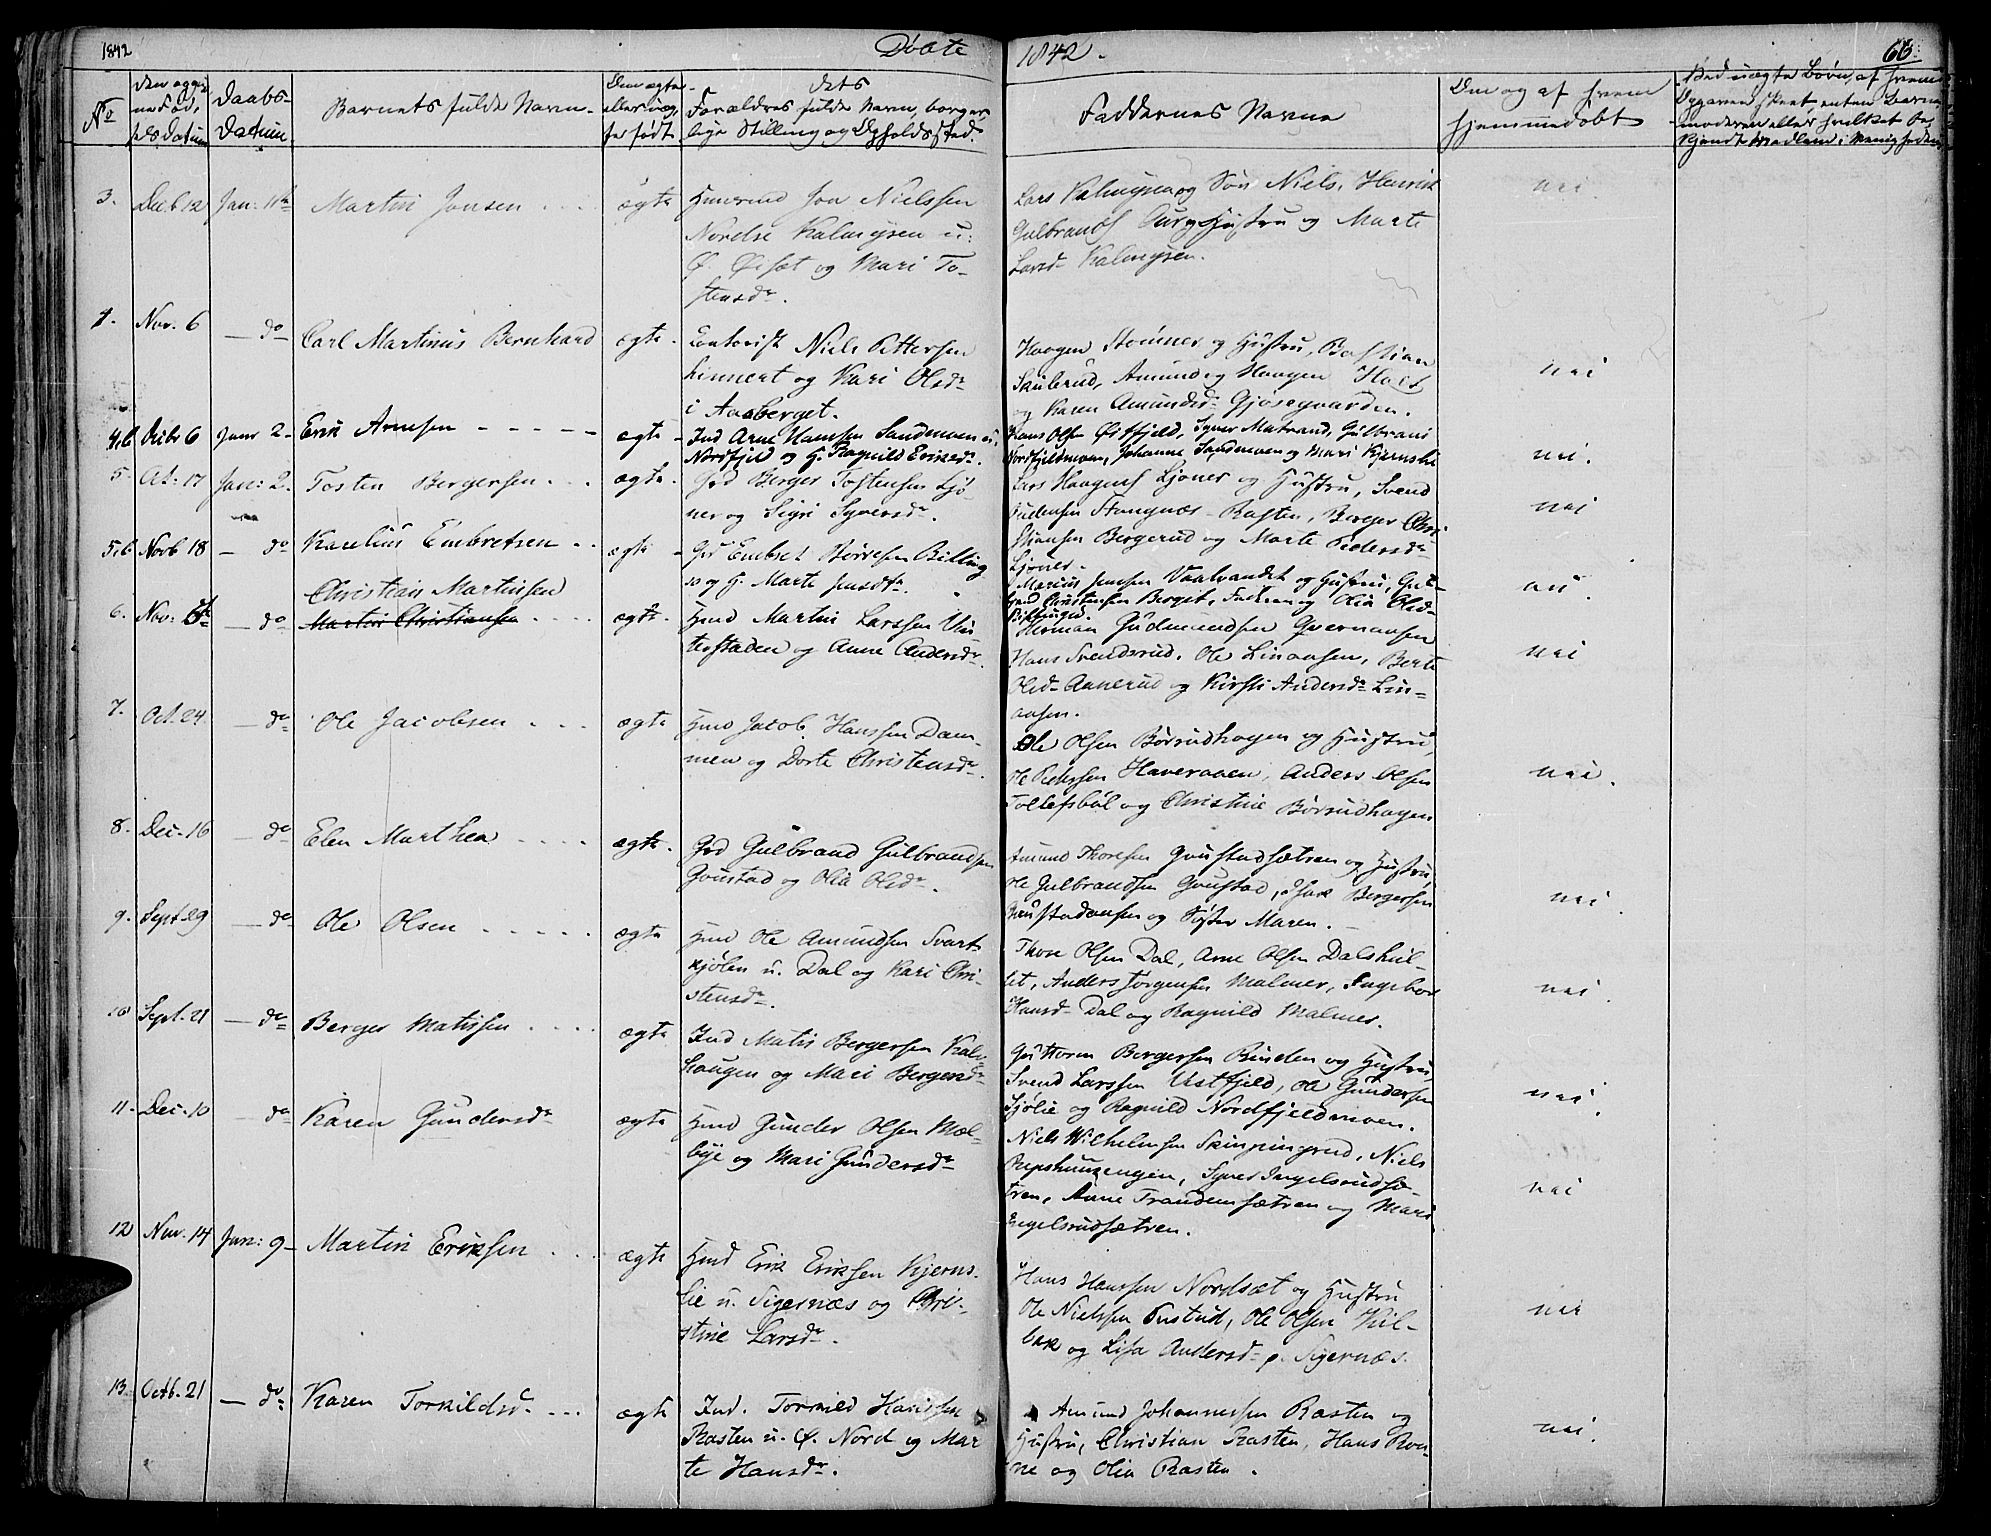 1842 Döbte 1842. 63.
No
Den opgivne Fødselsdatum
Daabs-Datum
Barnets fulde Navn
Den ægte eller uægte født
dets Forældres fulde Navn, borgerlige Stilling og Opholdssted.
Faddernes Navne
Om og af hvem hjemmedøbt
3. Decb 12 Jan: 1ste Martin Jonsen ægte
Huusmd Jon Nielssen
Nordse Kalneysen u:
Ø. Øisæt og Mari To-
stensdr.
Lars Kalneysen og Søn Niels, Henrik
Gulbrands Hustru og Marte
Larsd Kalneysen.
nei
4. Nov. 6 — do Carl Martinus Bernhard ægte.
Contorist Niels Pettersen
Linnert og Kari Olsdr
i Aasberget.
Haagen Stømner og Hustru, Bastian
Skulerud, Amund og Haagen Holt
og Karen Amundsdr Gjøsegaarden.
nei
4.b. Octbr 6 Janr 2 Erik Arnesen ægte
Ind Arne Hansen Sandmoen u.
Nordfjeld og H. Ragnild Eriksdr.
Hans Olsen Østfjeld, Syver Matrand, Gulbrand
Nordfjeldmoen, Johanne Sandmoen og Mari Kjernslie
nei.
5. Oct. 17 Jan: 2. Tosten Bergersen ægte.
Grd Berger Tostensen Ljø-
ner og Sigri Syversdr.
Lars Haagens Ljøner og Hustru, Svend
Audensen Stangnæs-Rasten, Berger Chri-
stiansen Bergerud og Marte Pedersdr
Ljøner.
nei
5.b Novb 18 — do Karelius Embretsen ægte
Grd Embret Børresen Billing
og H. Marte Jensdtr.
Marius Jensen Vaalrandet og Hustru, Gul-
brand Christensen Berget, Faderen og Olia Olsd
nei.
6. Nov: 6te — do Christian Martinsen
Martin Christiansen ægte.
Hmd Martin Larssen Vin-
terstaden og Anne Andersdr.
Herman Gudmundsen Qvernaasen
Hans Svendsrud, Ole Linaasen, Berte
Olsd Aanerud og Kirsti Andersdr Lin-
aasen.
nei
7. Oct. 24 — do Ole Jacobsen ægte
Hmd Jacob Hanssen Dam-
men og Dorte Christensdr.
Ole Olsen Børrudhagen og Hustru,
Ole Pederssen Haveraaen, Anders Olsen
Tollefsbøl og Christine Børrudhagen
nei.
8. Dec. 16 — do Elen Marthea ægte.
Grd Gulbrand Gulbrandsen
Goustad og Olia Olsdr.
Amund Thoresen Goustadsætren og Hustru,
Ole Gulbrandsen Goustad, Isak Bergersen
Goustadaasen og Søster Maren.
nei.
9. Sept. 29 — do Ole Olsen ægte
Hmd Ole Amundsen Svart-
kjølen u. Dal og Kari Chri-
stensdr.
Thore Olsen Dal, Arne Olsen Dalshul-
let, Anders Jørgensen Malmer, Ingebor
Hansd Dal og Ragnild Malmer.
nei.
10 Sept. 21 — do Berger Matissen ægte
Ind Matis Bergersen Kals-
haugen og Mari Bergersdr
Guttorm Bergersen Rinden og Hustru,
Svend Larssen Vestfjeld, Ole Gundersen
Sjølie og Ragnild Nordfjeldmoen.
nei.
11. Dec. 10 — do Karen Gundersdr ægte
Hmd Gunder Olsen Mæl-
bye og Mari Gundersdr
Niels Wilhelmsen Skinpingrud, Niels
Papshuusengen, Syver Ingelsrudsæ-
tren, Anne Trandemsætren og Mari
Ingelsrudsætren.
nei
12 Nov. 14 Jan: 9 Martin Eriksen ægte
Hmd Erik Eriksen Kjerns-
lie u. Sigernæs og Chri-
stine Larsdr.
Hans Hanssen Nordsæt og Hustru
Ole Nielssen Pustut, Ole Olsen Kul-
bak og Lisa Andersd p. Sigernæs.
nei
13. Octb. 21 — do Karen Torkildsd. ægte
Ind. Torkild Hanssen
Rasten u. Ø. Nord og Mar-
te Hansdr.
Amund Johannessen Rasten og
Hustru, Christian Rasten, Hans Ron-
ne og Olia Rasten.
nei.